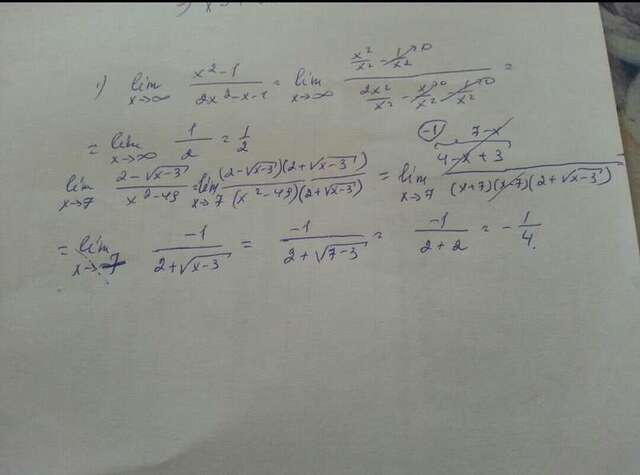 1) lim x→∞ (x²-1)/(2x²-x-1) = lim x→∞ (x²/x² - 1/x²→0)/(2x²/x² - x/x²→0 - 1/x²→0) =
= lim x→∞ 1/2 = 1/2
lim x→7 (2-√(x-3))/(x²-49) = lim x→7 ((2-√(x-3))(2+√(x-3)))/((x²-49)(2+√(x-3))) = lim x→7 (4-x+3)/((x+7)(x-7)(2+√(x-3))) =
(-1) 7-x
= lim x→7 -1/(2+√(x-3)) = -1/(2+√(7-3)) = -1/(2+2) = -1/4.